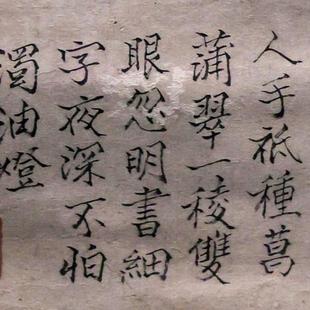 人手祗種菖
蒲翠一稜雙
眼忽明書細
字夜深不怕
濁油燈